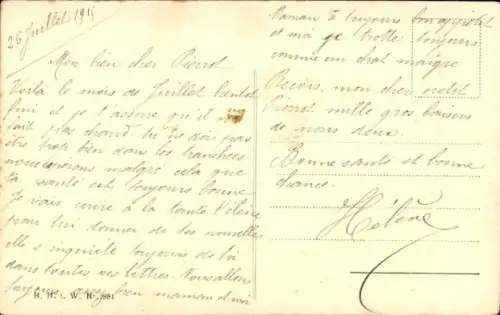 26 Juillet 1915
Mon bien cher Pierrot
Voilà le mois de Juillet bientôt
fini et je t'assure qu'il ne
fait pas chaud, tu ne dois pas
être trop bien dans les tranchées
nous espérons malgré cela que
ta santé est toujours bonne
Je vais écrire à la tante Hélène
pour lui donner de tes nouvelles
elle s'inquiète toujours de toi
dans toutes ses lettres. Nous allons
toujours assez bien maman et moi
H. H. i. W. Nr. 1981
Maman a toujours bon appétit
et moi je trotte toujours
comme un chat maigre
Reçois, mon cher petit
Pierrot mille gros baisers
de nous deux.
Bonne santé et bonne
chance.
Hélène